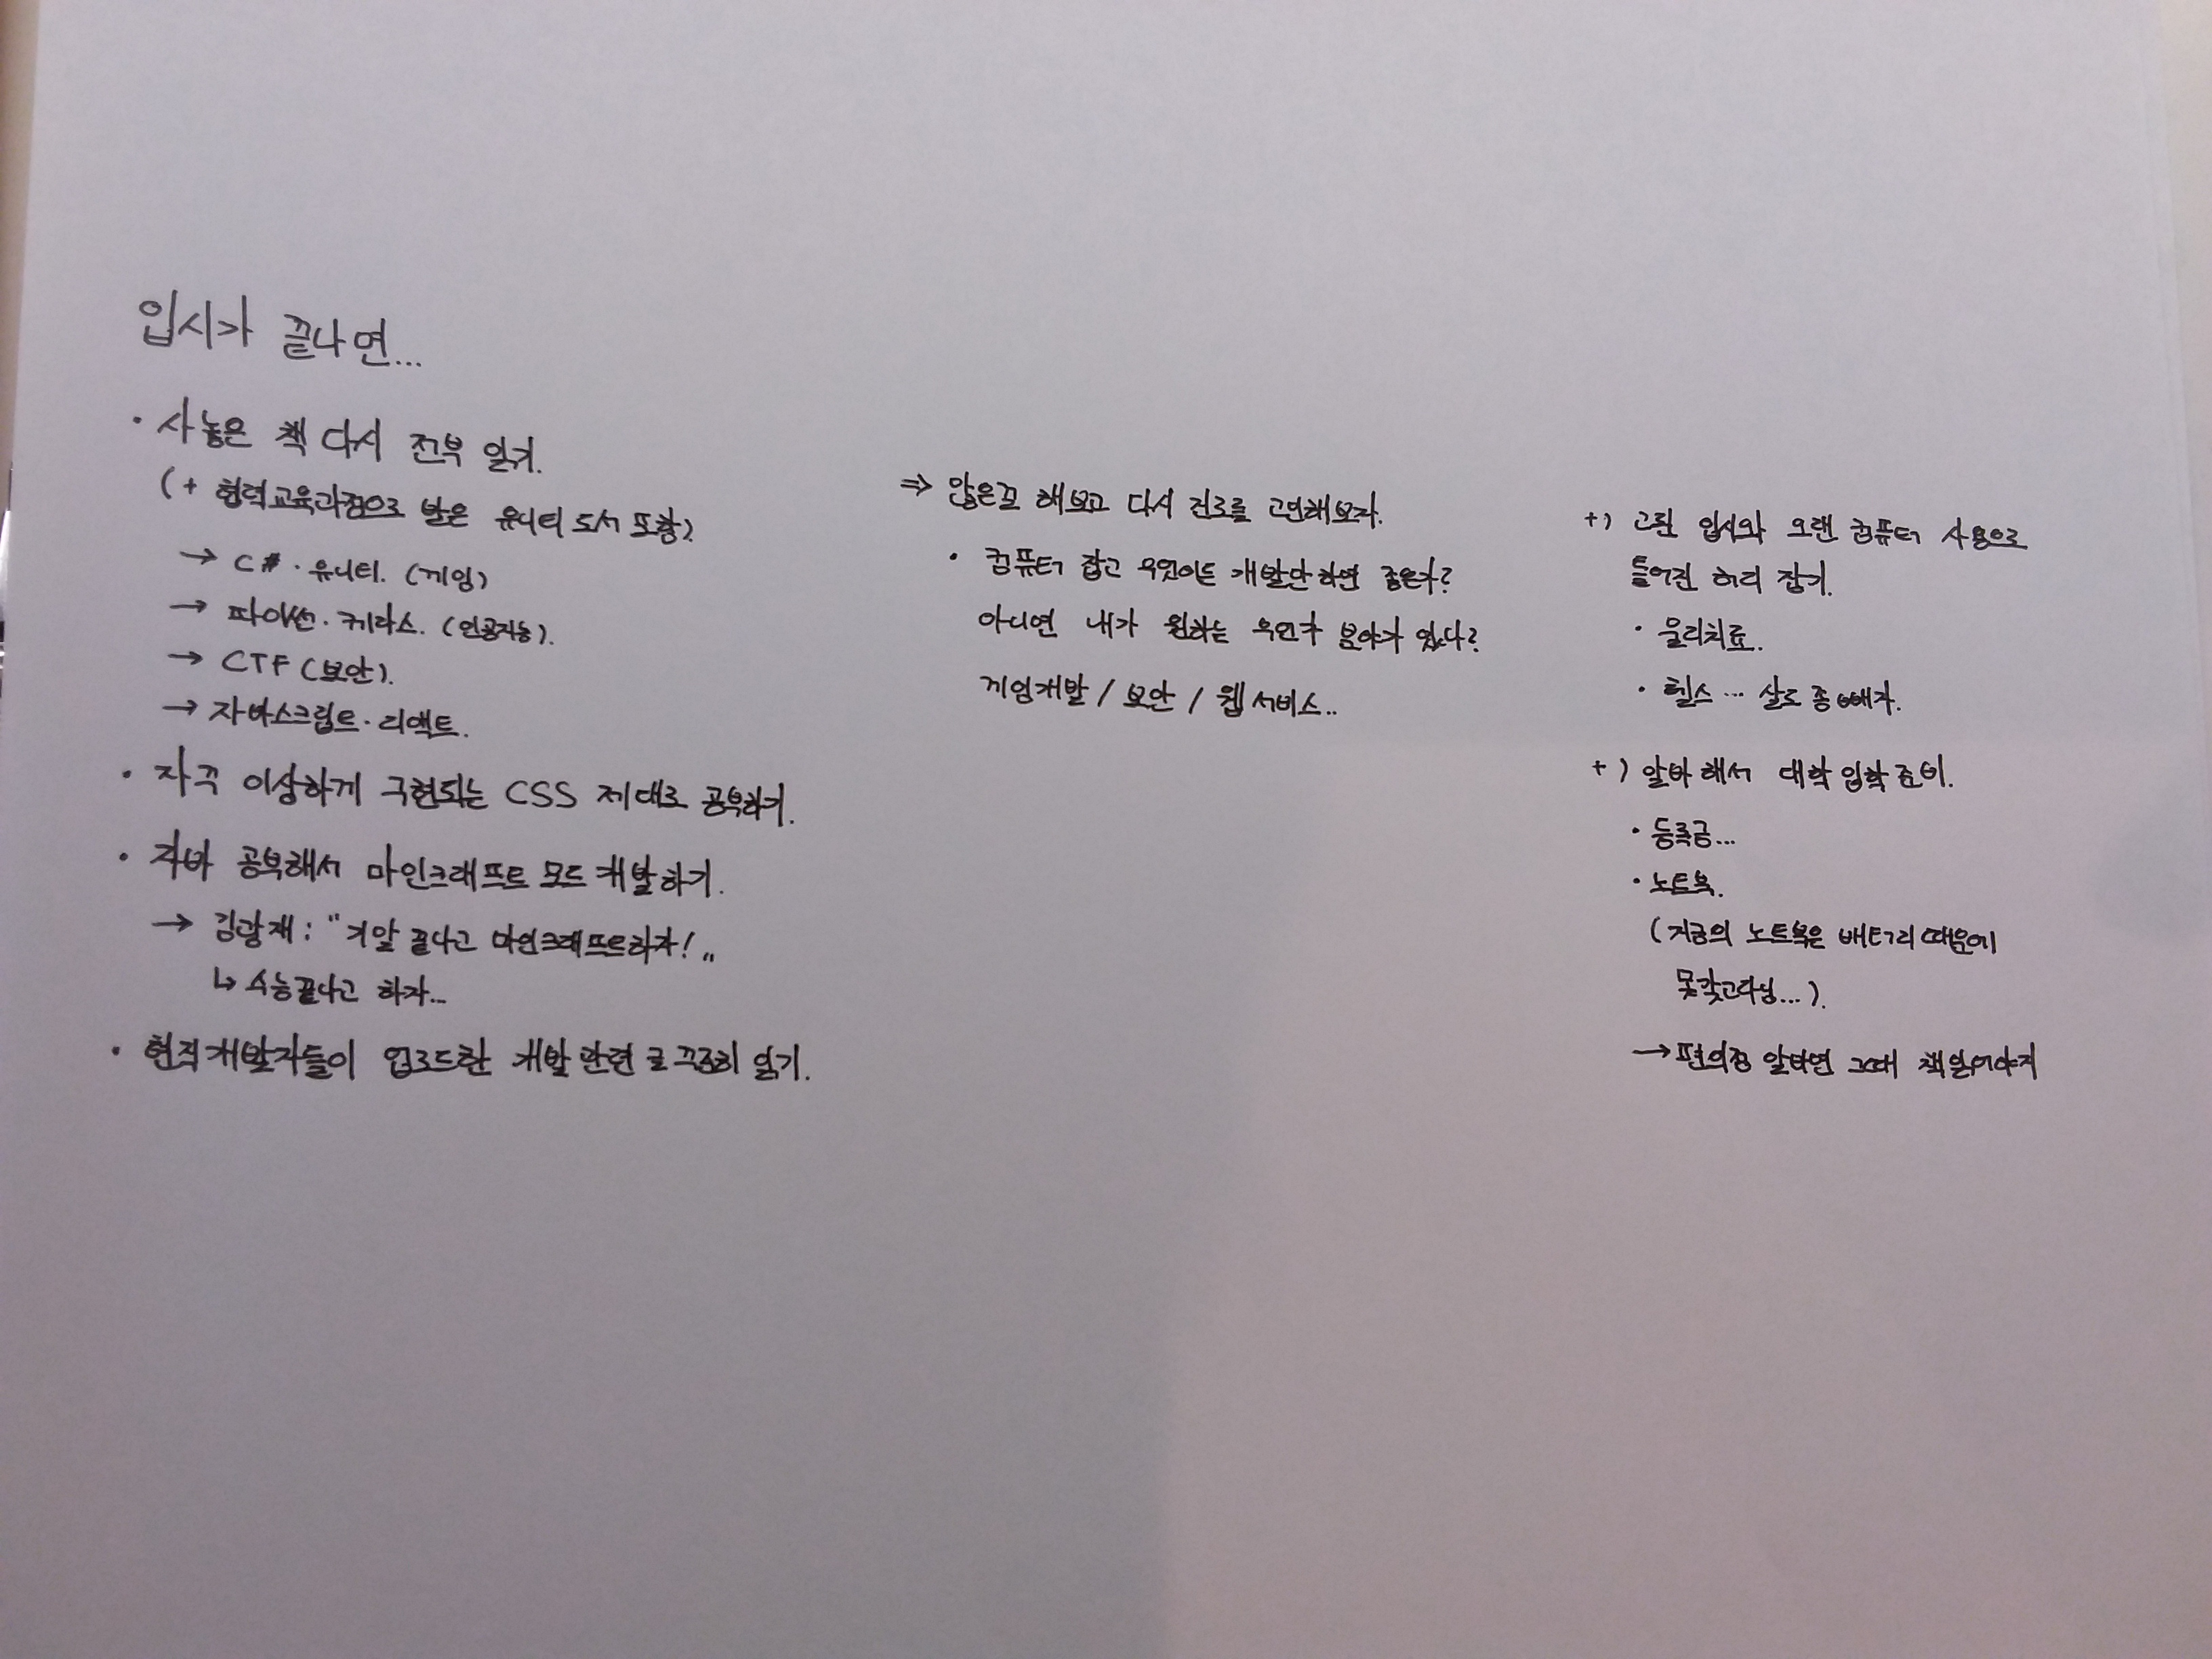 입시가 끝나면...
· 사놓은 책 다시 전부 읽기.
(+ 협력교육과정으로 받은 유니티 도서 포함)
→ C#·유니티. (게임)
→ 파이썬·케라스. (인공지능).
→ CTF (보안).
→ 자바스크립트·리액트.
· 자꾸 이상하게 구현되는 CSS 제대로 공부하기.
· 자바 공부해서 마인크래프트 모드 개발하기.
→ 김광재: "기말 끝나고 마인크래프트하자!"
↳ 수능끝나고 하자...
· 현직개발자들이 업로드한 개발 관련 글 꾸준히 읽기.
⇒ 해보고 다시 진로를 고민해보자.
· 컴퓨터 잡고 무엇이든 개발만 하면 좋은가?
아니면 내가 원하는 무언가 분야가 있나?
게임개발 / 보안 / 웹 서비스..
+) 고된 입시와 오랜 컴퓨터 사용으로
틀어진 허리 잡기.
· 물리치료.
· 헬스... 살도 좀 빼자.
+) 알바해서 대학 입학 준비.
· 등록금...
· 노트북.
(지금의 노트북은 배터리 때문에
못 갖고다님...).
→ 편의점 알바면 그때 책 읽어야지